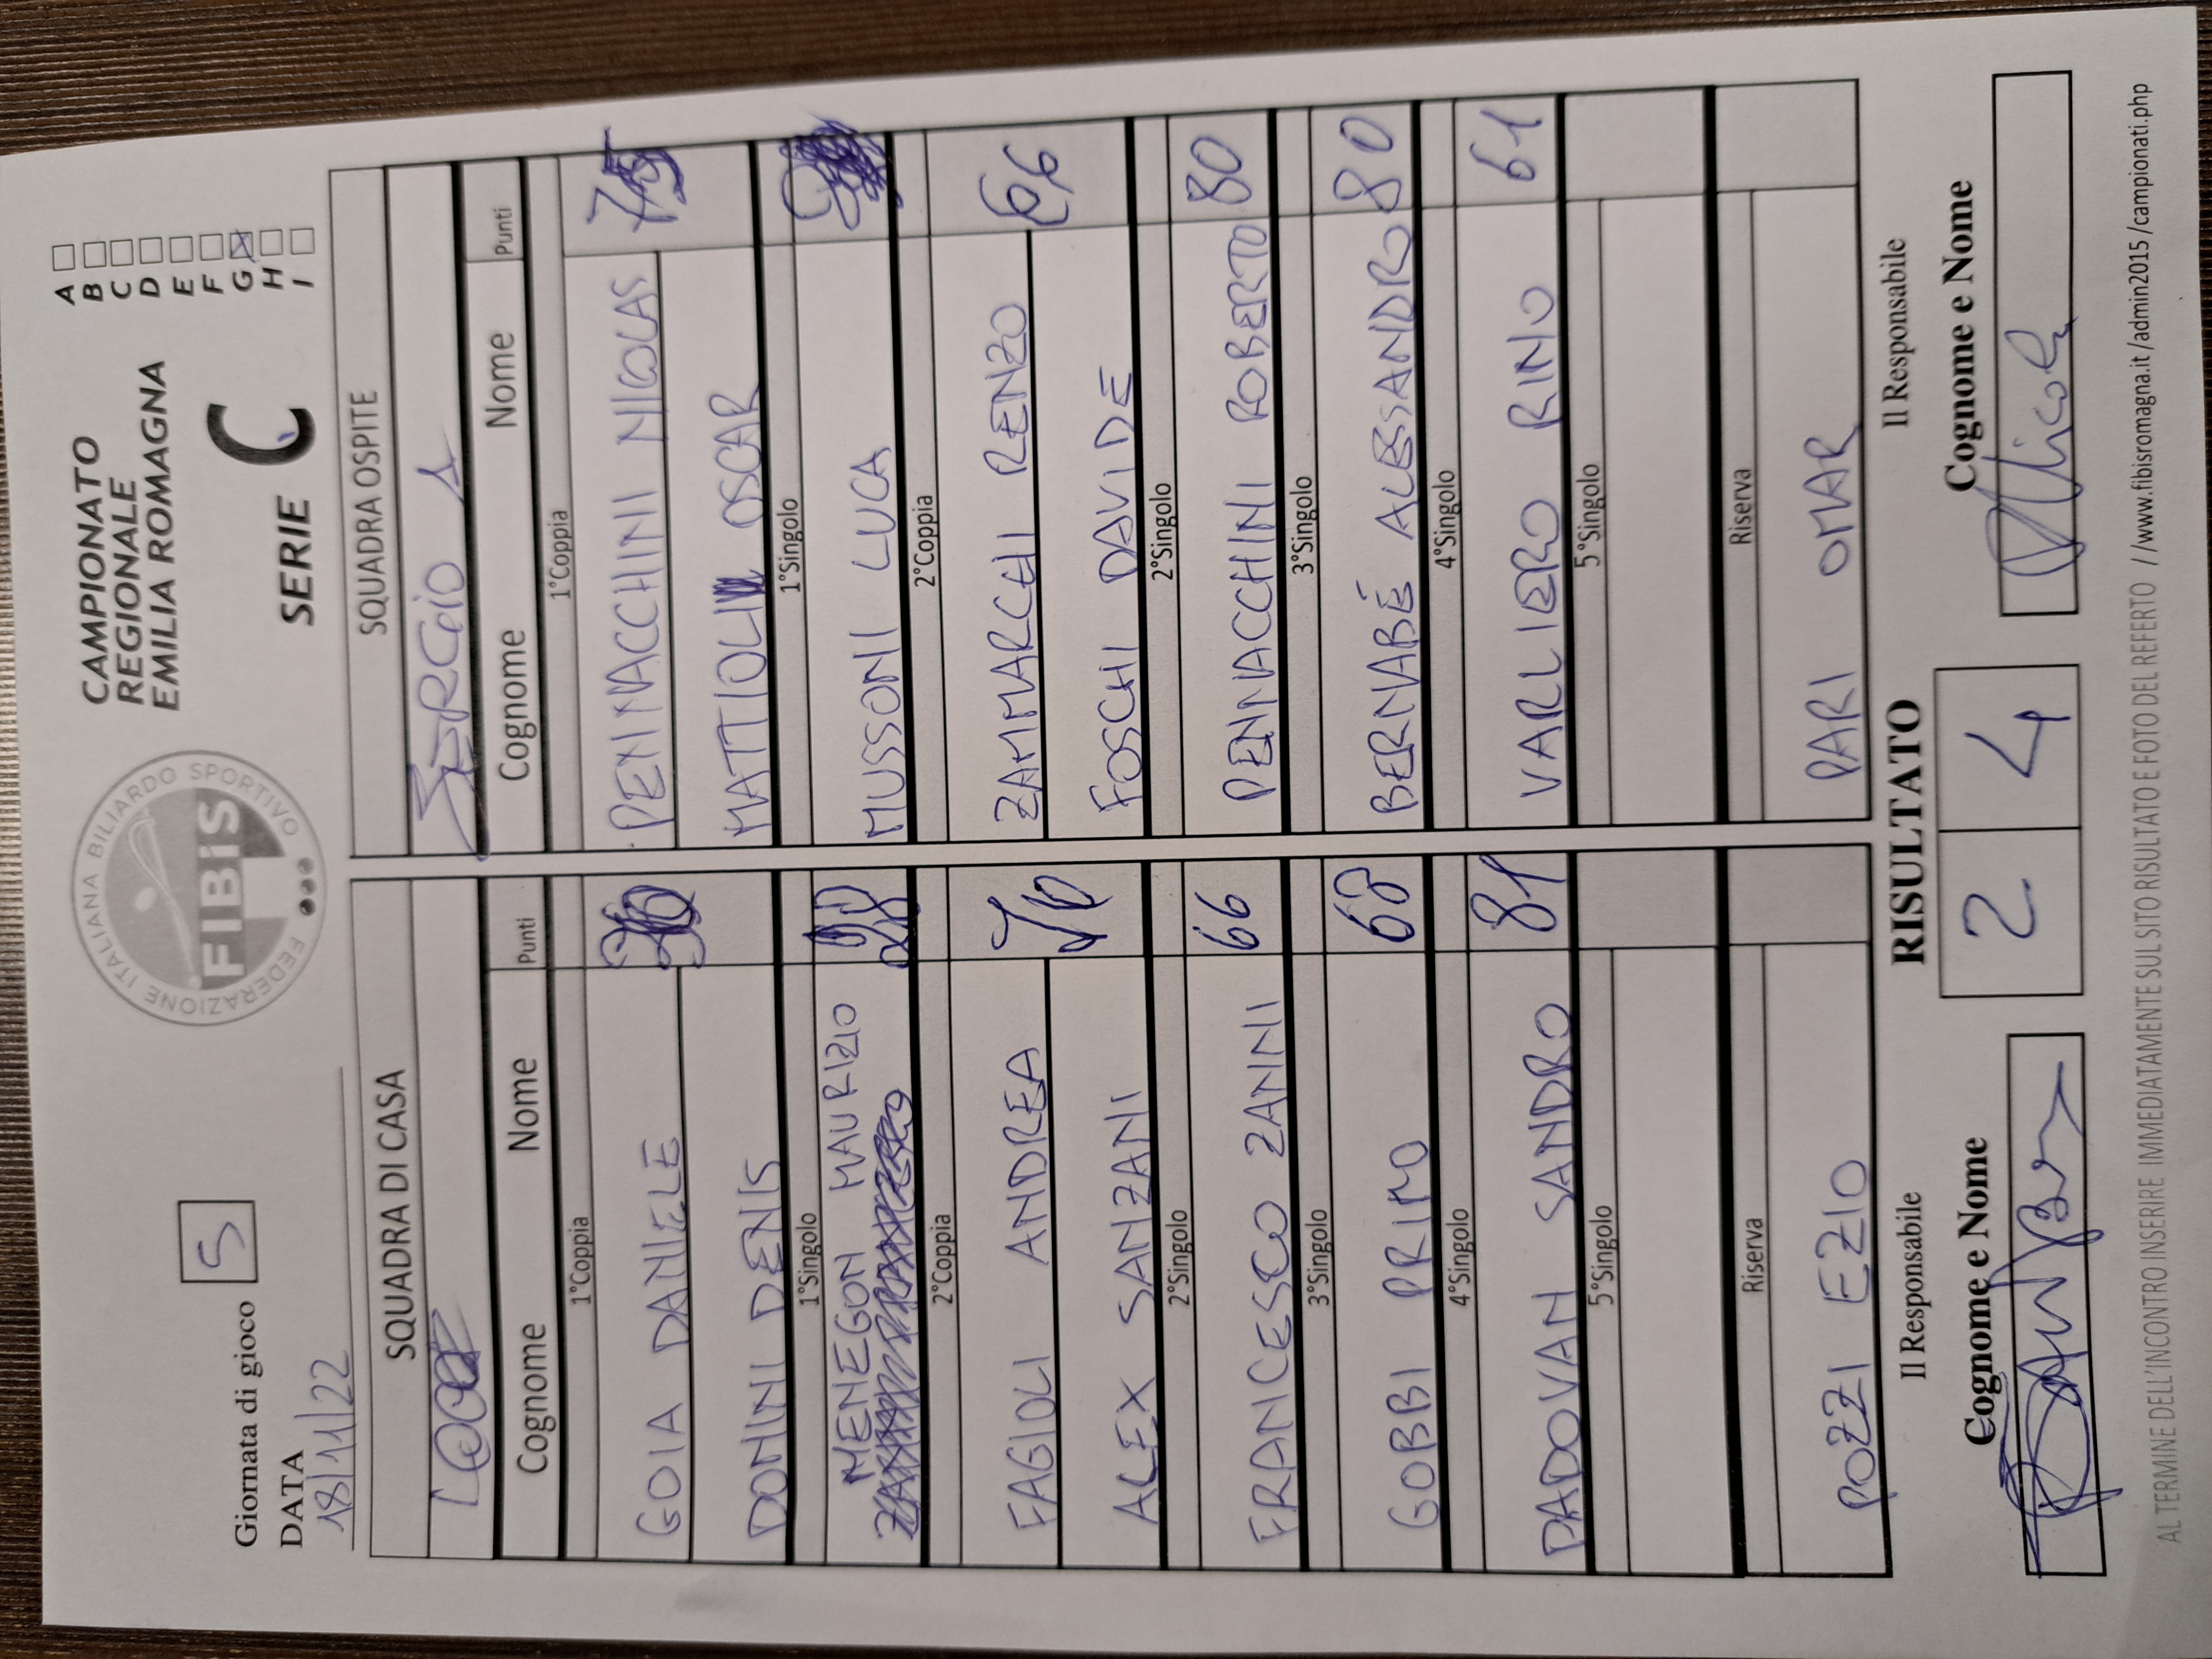 Giornata di gioco 5
DATA
18/11/22
FEDERAZIONE ITALIANA BILIARDO SPORTIVO
FIBiS
CAMPIONATO
REGIONALE
EMILIA ROMAGNA
SERIE C
A
B
C
D
E
F
G
H
I
SQUADRA DI CASA
Cognome Nome Punti
1°Coppia
GOIA DANIELE
DONINI DENIS
1°Singolo
MENEGON MAURIZIO
2°Coppia
FAGIOLI ANDREA
ALEX SANZANI
2°Singolo
FRANCESCO ZANNI 66
3°Singolo
GOBBI PRIMO 68
4°Singolo
PADOVAN SANDRO 81
5°Singolo
Riserva
POZZI EZIO
SQUADRA OSPITE
SERGIO 1
Cognome Nome Punti
1°Coppia
PENNACCHINI NICOLAS
MATTIOLI OSCAR
1°Singolo
MUSSONI LUCA
2°Coppia
ZAMMARCHI RENZO 66
FOSCHI DAVIDE
2°Singolo
PENNACCHINI ROBERTO 80
3°Singolo
BERNABÉ ALESSANDRO 80
4°Singolo
VARLIERO RINO 61
5°Singolo
Riserva
PARI OMAR
Il Responsabile
RISULTATO
Il Responsabile
Cognome e Nome
2 4
Cognome e Nome
AL TERMINE DELL'INCONTRO INSERIRE IMMEDIATAMENTE SUL SITO RISULTATO E FOTO DEL REFERTO //www.fibisromagna.it/admin2015/campionati.php